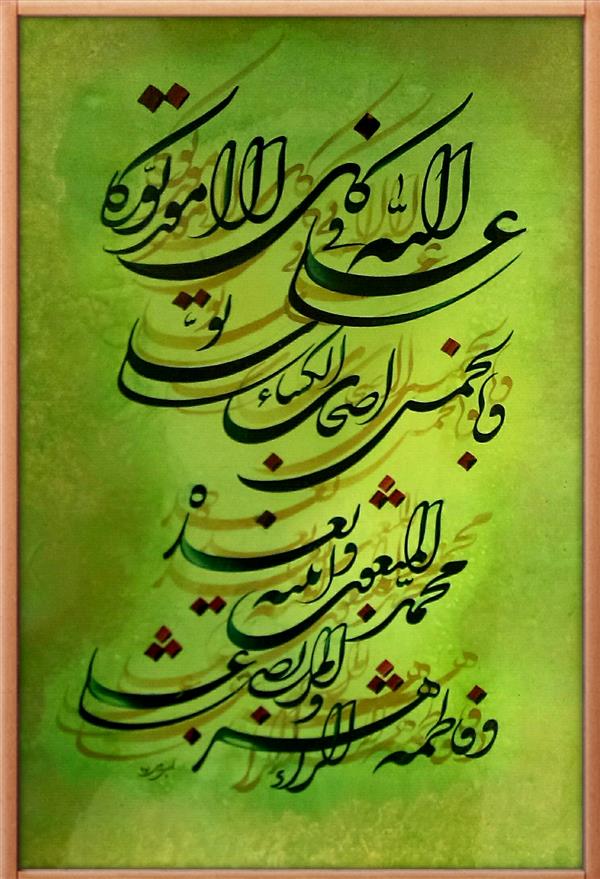 علی اللّه فی کل الامور توکلی
وبالخمس اصحاب الکساء توسّلی
محمّد المبعوث وابنیه بعده
وفاطمه الزهراء والمرتضی علی